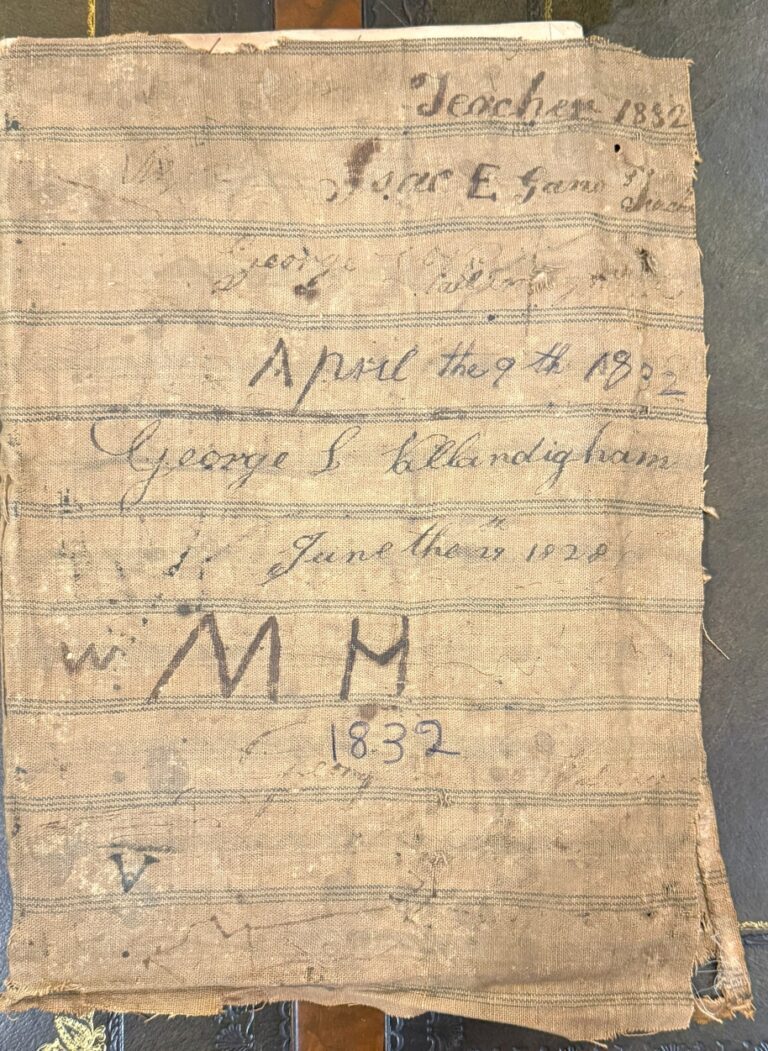 Teacher 1832
Isac E Gano
George
April the 9 th 1832
George L Vallandigham
June the 29 1828
W M H
1832
V